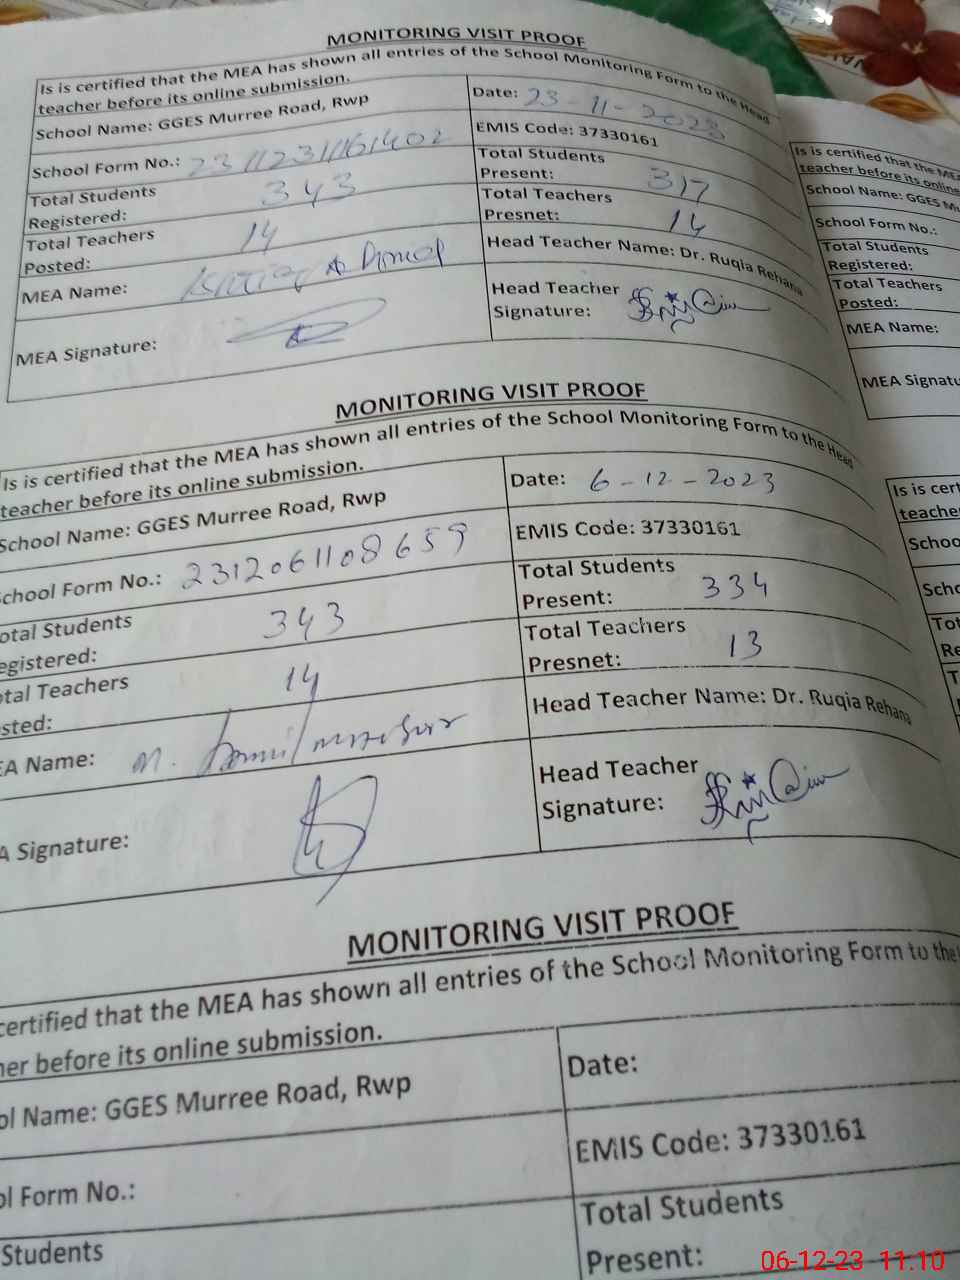 MONITORING VISIT PROOF
Is is certified that the MEA has shown all entries of the School Monitoring Form to the Head
teacher before its online submission.
School Name: GGES Murree Road, Rwp
Date: 23-11-2023
School Form No.:
EMIS Code: 37330161
Total Students
Registered: 343
Total Students
Present: 317
Total Teachers
Posted: 14
Total Teachers
Presnet: 14
MEA Name:
Head Teacher Name: Dr. Ruqia Rehana
MEA Signature:
Head Teacher
Signature:
MONITORING VISIT PROOF
Is is certified that the MEA has shown all entries of the School Monitoring Form to the Head
teacher before its online submission.
School Name: GGES Murree Road, Rwp
Date: 6-12-2023
School Form No.: 2312061108659
EMIS Code: 37330161
otal Students
egistered: 343
Total Students
Present: 334
tal Teachers
sted: 14
Total Teachers
Presnet: 13
EA Name: M.
Head Teacher Name: Dr. Ruqia Rehana
A Signature:
Head Teacher
Signature:
MONITORING VISIT PROOF
certified that the MEA has shown all entries of the School Monitoring Form to the
her before its online submission.
ol Name: GGES Murree Road, Rwp
Date:
ol Form No.:
EMIS Code: 37330161
Students
Total Students
Present:
Is is certified that the MEA
teacher before its online
School Name: GGES Mu
School Form No.:
Total Students
Registered:
Total Teachers
Posted:
MEA Name:
MEA Signatu
Is is cert
teacher
Schoo
Scho
Tot
Re
T
06-12-23 11:10